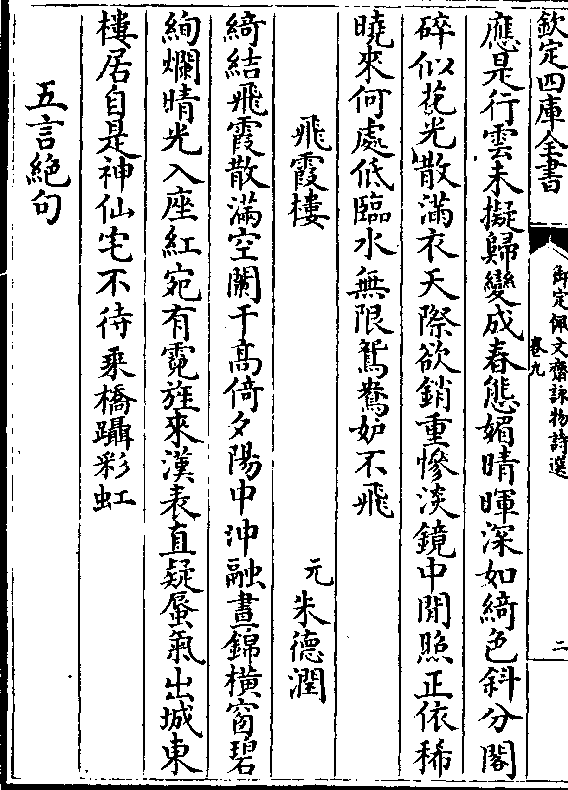 欽定四庫全書
御定佩文齋詠物詩選
卷九
二
應是行雲未擬歸變成春態媚晴暉深如綺色斜分閣
碎似花光散滿衣天際欲銷重慘淡鏡中閒照正依稀
曉來何處低臨水無限鴛鴦妒不飛
飛霞樓
元朱德潤
綺結飛霞散滿空闌干高倚夕陽中沖融晝錦橫窗碧
絢爛晴光入座紅宛有霓旌來漢表直疑蜃氣出城東
樓居自是神仙宅不待乘橋躡彩虹
五言絶句